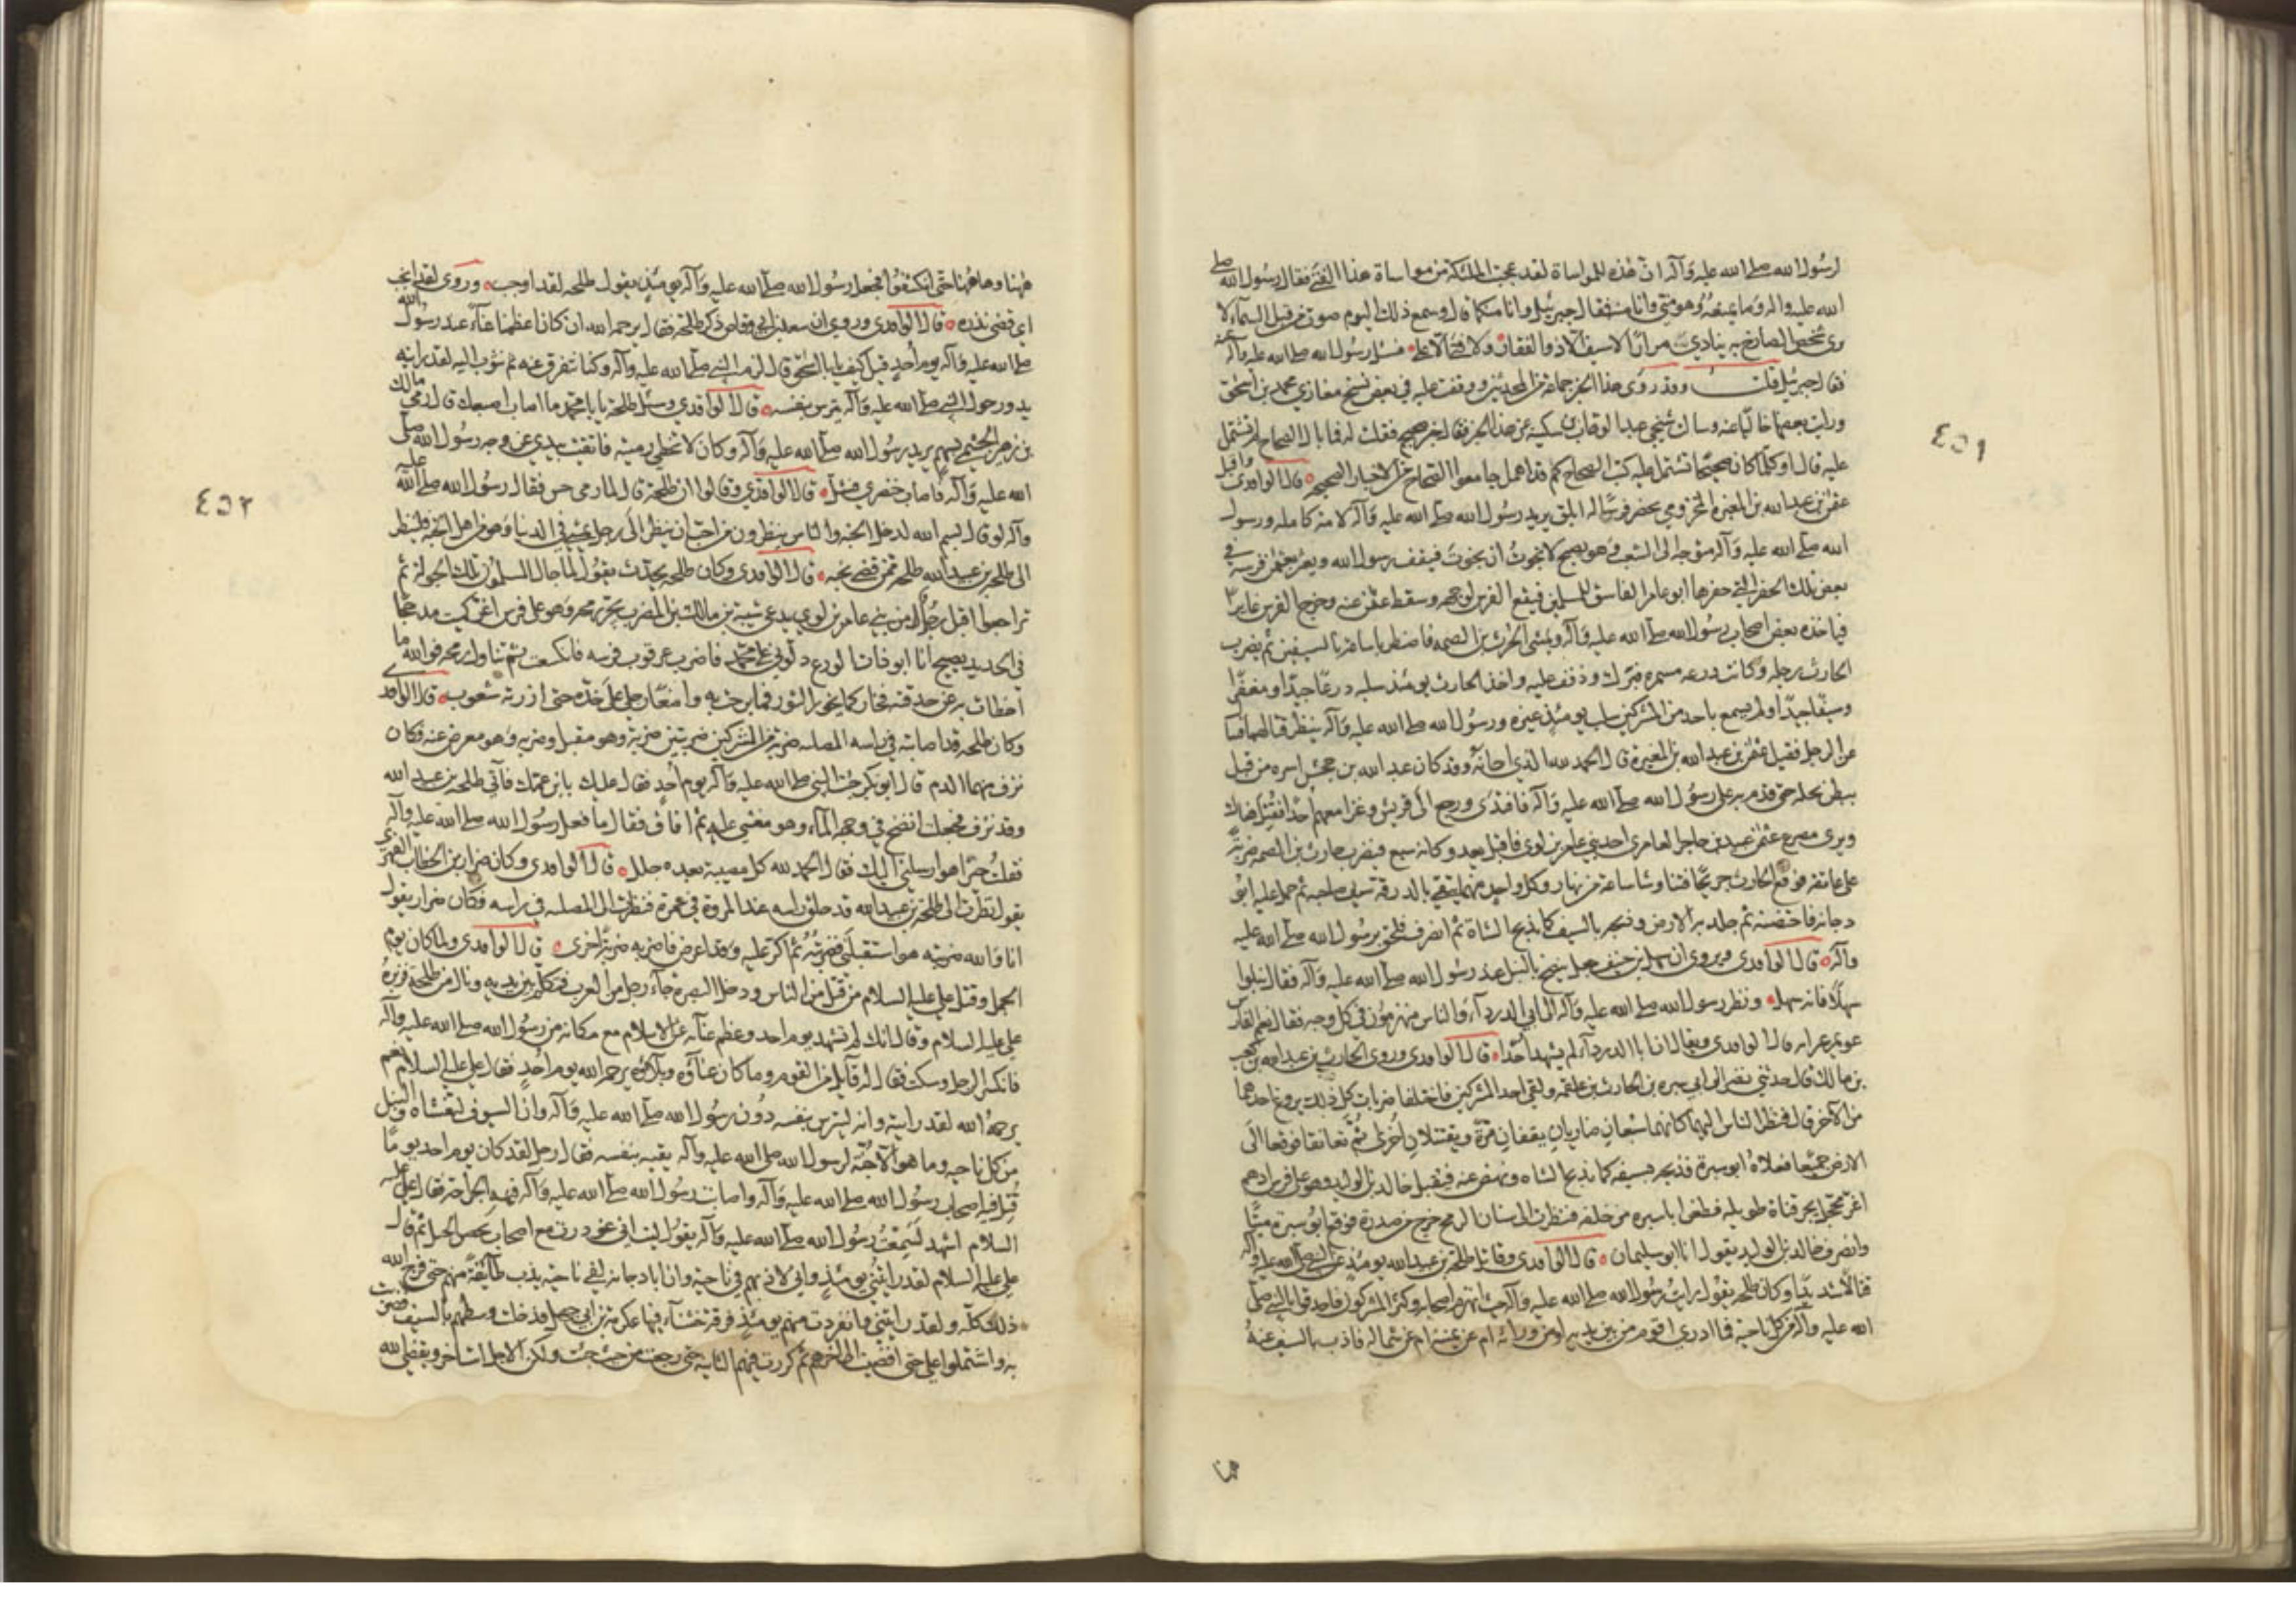 لرسول الله صلى الله عليه وآله ان هذه للمواساة لقد عجبت الملئكة من مواساة هذا الفتى فقال رسول الله صلى
الله عليه واله وما يمنعه وهو مني وانا منه فقال جبرئيل وانا منكما قال وسمع ذلك اليوم صوت من قبل السماء لا
يرى شخص الصارخ به ينادي مرارا لا سيف الا ذو الفقار ولا فتى الا علي فسئل رسول الله صلى الله عليه وآله عنه
فقال جبرئيل قلت وقد روى هذا الخبر جماعة من المحدثين ووقفت عليه في بعض نسخ مغازي محمد بن اسحق
ورايت بعضها خاليا عنه وسالت شيخي عبد الوهاب بن سكينة عن هذا الخبر فقال خبر صحيح فقلت له فما بال الصحاح لم تشتمل
عليه قال او كلما كان صحيحا تشتمل عليه كتب الصحاح كم قد اهمل جامعوا الصحاح من الاخبار الصحيحة قال الواقدى واقبل
عثمن بن عبد الله بن المغيرة المخزومي يحضر فرسا له ابلق يريد رسول الله صلى الله عليه وآله لامة كاملة ورسول
الله صلى الله عليه وآله موجه الى الشعب وهو يصيح لا نجوت ان نجوت فيقف رسول الله ويعثر بعثمن فرسه في
بعض تلك الحفر التي حفرها ابو عامر الفاسق للمسلمين فيقع الفرس لوجهه وسقط عثمن عنه وخرج الفرس غايرا
فياخذه بعض اصحاب رسول الله صلى الله عليه وآله ويمشى الحرث بن الصمه فاضطربا ساعة بالسيفين ثم يضرب
الحارث رجله وكانت درعه مشمره فبرك وذفف عليه واخذ الحارث يومئذ سلبه درعا جيدا ومغفرا
وسيفا جيدا ولم يسمع باحد من المشركين سلب يومئذ غيره ورسول الله صلى الله عليه وآله ينظر قتالهما فسال
عن الرجل فقيل عثمن بن عبد الله بن المغيرة قال الحمد لله الذي احانه وقد كان عبد الله بن جحش اسره من قبل
ببطن نخله حتى قدم به على رسول الله صلى الله عليه وآله فافتدى ورجع الى قريش وغزا معهم احدا فقتل هناك
ويرى مصرع عثمن عبيد بن حاجز العامرى احد بني عامر بن لوى فاقبل يعدو كانه سبع فيضرب حارث بن الصمه ضربة
على عاتقه فوقع الحارث جريحا فتناوشا ساعة من نهار وكل واحد منهما يتقي بالدرقة سيف صاحبه ثم حمل عليه ابو
دجانة فاحتضنه ثم جلد به الارض وذبحه بالسيف كما يذبح الشاة ثم انصرف فلحق برسول الله صلى الله عليه
وآله قال الواقدى ويروى ان سهل بن حنيف جعل ينضح بالنبل عن رسول الله صلى الله عليه وآله فقال نبلوا
سهلا فانه سهل ونظر رسول الله صلى الله عليه وآله الى ابي الدرداء والناس منهزمون في كل وجه فقال نعم الفارس
عويمر غير انه قال الواقدى ويقال ان ابا الدرداء لم يشهد احدا قال الواقدى وروى الحارث بن عبد الله بن كعب
بن مالك قال حدثني من نظر الى ابي سبره بن الحارث بن علقمه ولقي احد المشركين فاختلفا ضربات كل ذلك يروغ احدهما
من الآخر قال فنظر الناس اليهما كانهما سبعان ضاريان يقفان مرة ويقتتلان اخرى ثم تعانقا فوقعا الى
الارض جميعا فعلاه ابو سبرة فذبحه بسيفه كما تذبح الشاه ونهض عنه فيقبل خالد بن الوليد وهو على فرس ادهم
اغر محجل يجر قناة طويله فطعن ابا سبره من خلفه فنظرت الى سنان الرمح خرج من صدره فوقع ابو سبرة ميتا
وانصرف خالد بن الوليد يقول انا ابو سليمان قال الواقدى وقاتل طلحة بن عبيد الله يومئذ عن النبي صلى الله عليه وآله
قتالا شديدا وكان طلحه يقول رايت رسول الله صلى الله عليه وآله حيث انهزم اصحابه وكثر المشركون فاحدقوا بالنبي صلى
الله عليه وآله من كل ناحية فما ادرى اقوم من بين يديه او من ورائه ام عن يمينه ام عن شماله فاذب بالسيف عنه
هنا
٤٥١
ههنا وهاهنا حتى انكشفوا فجعل رسول الله صلى الله عليه وآله يومئذ يقول طلحه لقد اوجب وروى لقد انحب
اي قضى نذره قال الواقدى وروى ان سعد بن ابي وقاص ذكر طلحة فقال يرحمه الله ان كان اعظمنا غناء عن رسول الله
صلى الله عليه وآله يوم احد قيل كيف يا ابا اسحق قال لزم النبي صلى الله عليه وآله وكنا نتفرق عنه ثم نثوب اليه لقد رايته
يدور حول النبي صلى الله عليه وآله يترس بنفسه قال الواقدي وسئل طلحة يا ابا محمد ما اصاب اصبعك قال رمى مالك
بن زهير الجشمي بسهم يريد رسول الله صلى الله عليه وآله وكان لا تخطي رميته فاتقيت بيدي عن وجه رسول الله صلى
الله عليه وآله فاصاب خنصري فشل قال الواقدي وقالوا ان طلحة قال لما رمى حس فقال رسول الله صلى الله عليه
وآله لو قال بسم الله لدخل الجنة والناس ينظرون من احب ان ينظر الى رجل يمشي في الدنيا وهو من اهل الجنة فلينظر
الى طلحة بن عبيد الله طلحة ممن قضى نحبه قال الواقدى وكان طلحه يحدث يقول لما جال المسلمون تلك الجوله ثم
تراجعوا اقبل رجل من بني عامر بن لوي يدعى شيبة بن مالك بن المضرب يجر رمحه وهو على فرس اغر كميت مدججا
في الحديد يصيح انا ابو ذات الودع دلوني على محمد فاضرب عرقوب فرسه فاكتسعت ثم تناول رمحه فوالله ما
اخطات به عن حدقته فخار كما يخور الثور فما برحت به واضعا رجلي على خده حتى ازرته شعوب قال الواقدى
وكان طلحه قد اصابته في راسه المصلبه ضربه رجل من المشركين ضربتين ضربة وهو مقبل وضربه وهو معرض عنه فكان
نزف منهما الدم قال ابو بكر جئت النبي صلى الله عليه وآله يوم احد فقال عليك بابن عمك فآتي طلحه بن عبيد الله
وقد نزف فجعلت انضح في وجهه الماء وهو مغشي عليه ثم افاق فقال ما فعل رسول الله صلى الله عليه وآله
فقلت خيرا هو ارسلني اليك فقال الحمد لله كل مصيبة بعده جلل قال الواقدى وكان ضرار بن الخطاب الفهري
يقول نظرت الى طلحة بن عبيد الله قد حلق راسه عند المروة في عمرة فنظرت الى المصلبه في راسه فكان ضرار يقول
انا والله ضربته هو استقبلني فضربته ثم اكر عليه وقد اعرض فاضربه ضربة اخرى قال الواقدى ولما كان يوم
الجمل وقتل علي عليه السلام من قتل من الناس ودخل البصرة جآء رجل من العرب فتكلم بين يديه ونال من طلحة فزبره
علي عليه السلام وقال انك لم تشهد يوم احد وعظم غنآئه عن الاسلام مع مكانه من رسول الله صلى الله عليه وآله
فانكسر الرجل وسكت فقال له قائل من القوم وما كان غنآؤه وبلآؤه يرحمه الله يوم احد فقال علي عليه السلام نعم
يرحمه الله لقد رايته وانه ليترس بنفسه دون رسول الله صلى الله عليه وآله وان السيوف لتغشاه والنبل
من كل ناحيه وما هو الا جنة لرسول الله صلى الله عليه وآله يقيه بنفسه فقال رجل لقد كان يوم احد يوما
قتل فيه اصحاب رسول الله صلى الله عليه وآله واصاب رسول الله صلى الله عليه وآله فيه الجراحة فقال علي عليه
السلام اشهد لسمعت رسول الله صلى الله عليه وآله يقول ليت اني غودرت مع اصحاب نحص الجبل ثم قال
علي عليه السلام لقد رايتني يومئذ واني لاذبهم في ناحية وان ابا دجانه لفي ناحيه يذب طآئفة منهم حتى فرج الله
ذلك كله ولقد رايتني وانفردت منهم يومئذ فرقة خشنآء فيها عكرمة بن ابي جهل فدخلت وسطهم بالسيف فضربت
به واشتملوا علي حتى افضيت الى اخرهم ثم كررت فيهم الثانيه حتى رجعت من حيث جئت ولكن الاجل استاخر ويقضي الله
٤٥٢